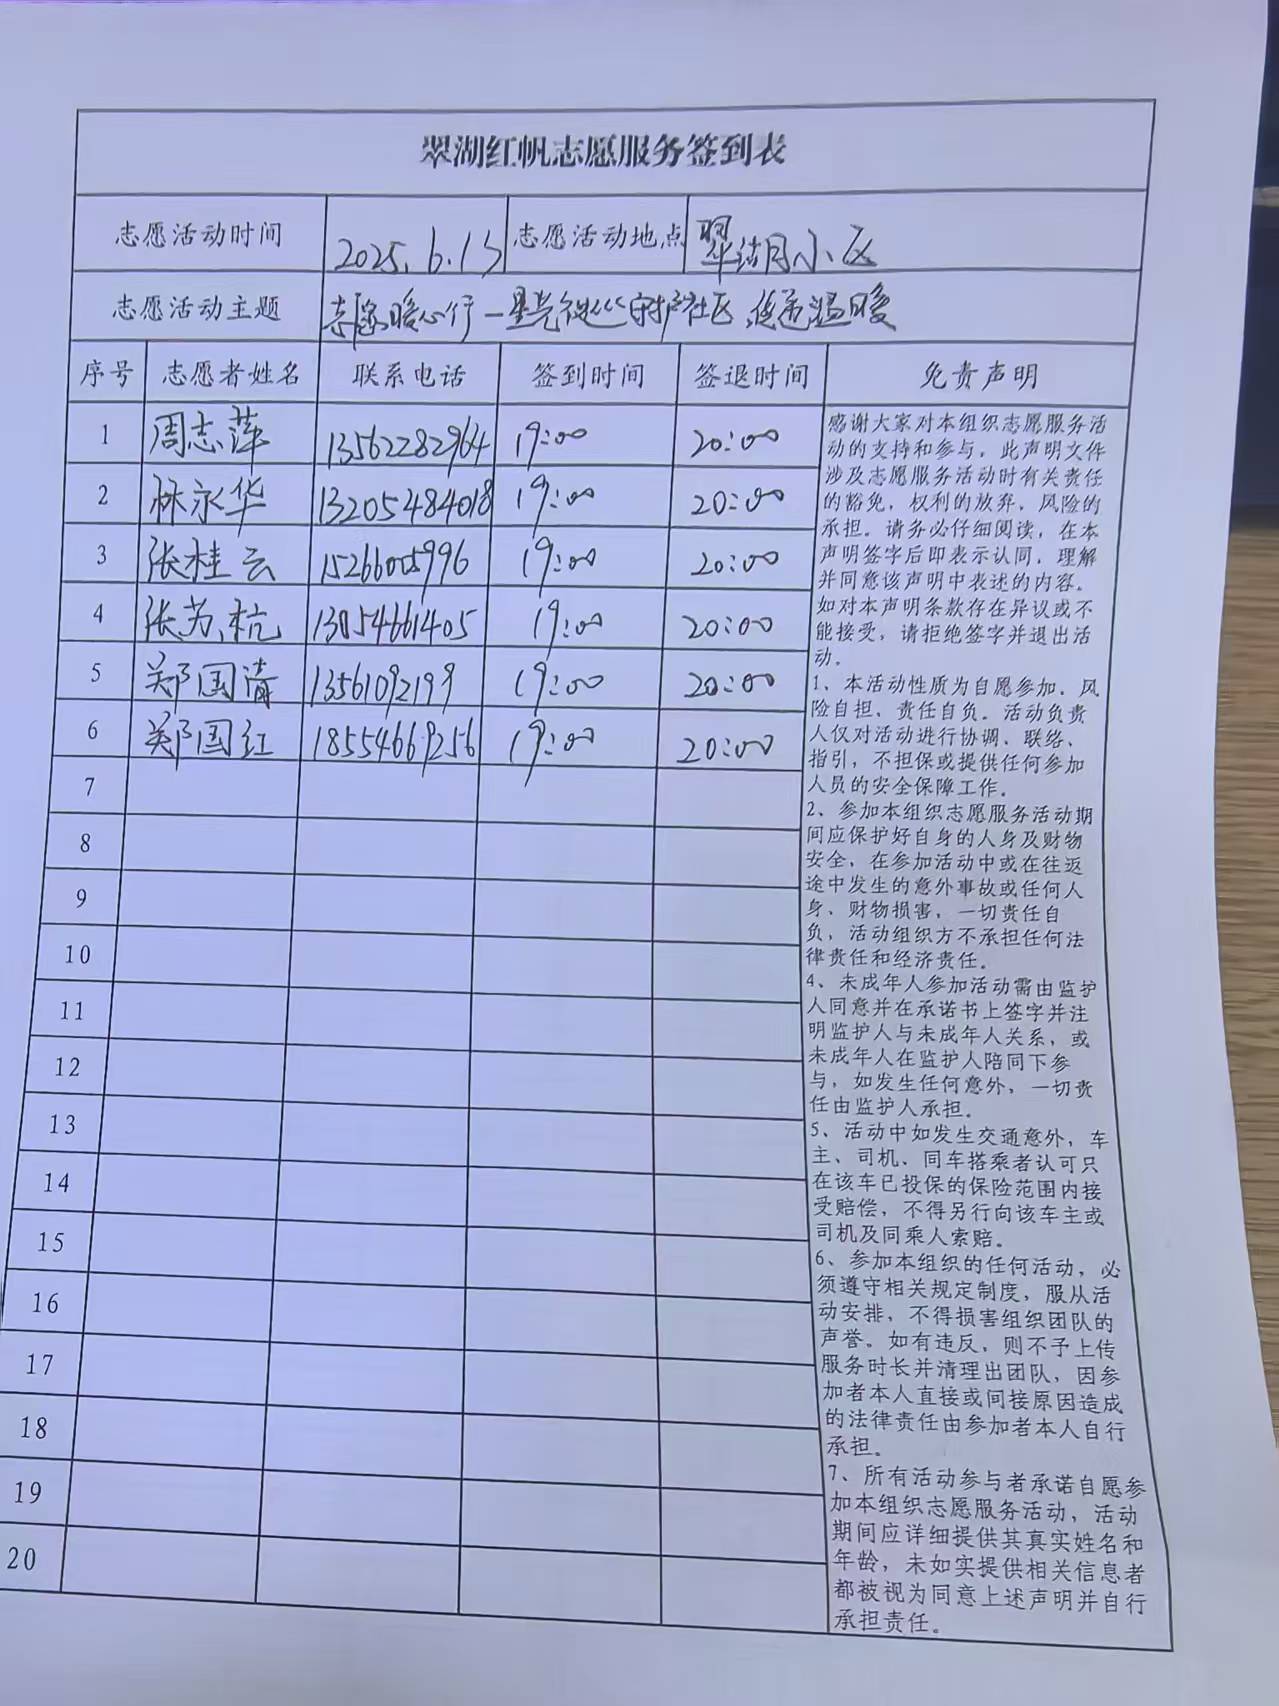 翠湖红帆志愿服务签到表
志愿活动时间 2025.6.13 志愿活动地点 翠湖月小区
志愿活动主题 志愿暖心行一星光 守护社区 传递温暖
序号 志愿者姓名 联系电话 签到时间 签退时间 免责声明
1 周志萍 13562282964 19:00 20:00
2 林永华 13205484018 19:00 20:00
3 张桂云 15266005996 19:00 20:00
4 张苏杭 13054661405 19:00 20:00
5 郑国清 13561092199 19:00 20:00
6 郑国红 18554669256 19:00 20:00
7
8
9
10
11
12
13
14
15
16
17
18
19
20
感谢大家对本组织志愿服务活
动的支持和参与，此声明文件
涉及志愿服务活动时有关责任
的豁免，权利的放弃，风险的
承担。请务必仔细阅读，在本
声明签字后即表示认同，理解
并同意该声明中表述的内容。
如对本声明条款存在异议或不
能接受，请拒绝签字并退出活
动．
1、本活动性质为自愿参加．风
险自担、责任自负．活动负责
人仅对活动进行协调、联络、
指引，不担保或提供任何参加
人员的安全保障工作。
2、参加本组织志愿服务活动期
间应保护好自身的人身及财物
安全，在参加活动中或在往返
途中发生的意外事故或任何人
身、财物损害，一切责任自
负，活动组织方不承担任何法
律责任和经济责任．
4、未成年人参加活动需由监护
人同意并在承诺书上签字并注
明监护人与未成年人关系，或
未成年人在监护人陪同下参
与，如发生任何意外，一切责
任由监护人承担．
5、活动中如发生交通意外，车
主、司机、同车搭乘者认可只
在该车已投保的保险范围内接
受赔偿，不得另行向该车主或
司机及同乘人索赔。
6、参加本组织的任何活动，必
须遵守相关规定制度，服从活
动安排，不得损害组织团队的
声誉。如有违反，则不予上传
服务时长并清理出团队，因参
加者本人直接或间接原因造成
的法律责任由参加者本人自行
承担。
7、所有活动参与者承诺自愿参
加本组织志愿服务活动，活动
期间应详细提供其真实姓名和
年龄，未如实提供相关信息者
都被视为同意上述声明并自行
承担责任。